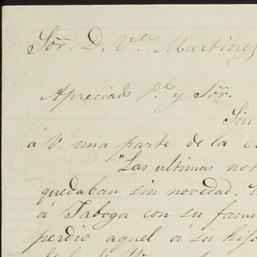 Sõr. D. Vte. Martinez
Apreciado P. y Sõr.
Sin
á V. una parte de la
"Las ultimas not
quedaban sin novedad.
á Taboga con su fami
perdió aquel á su hijo